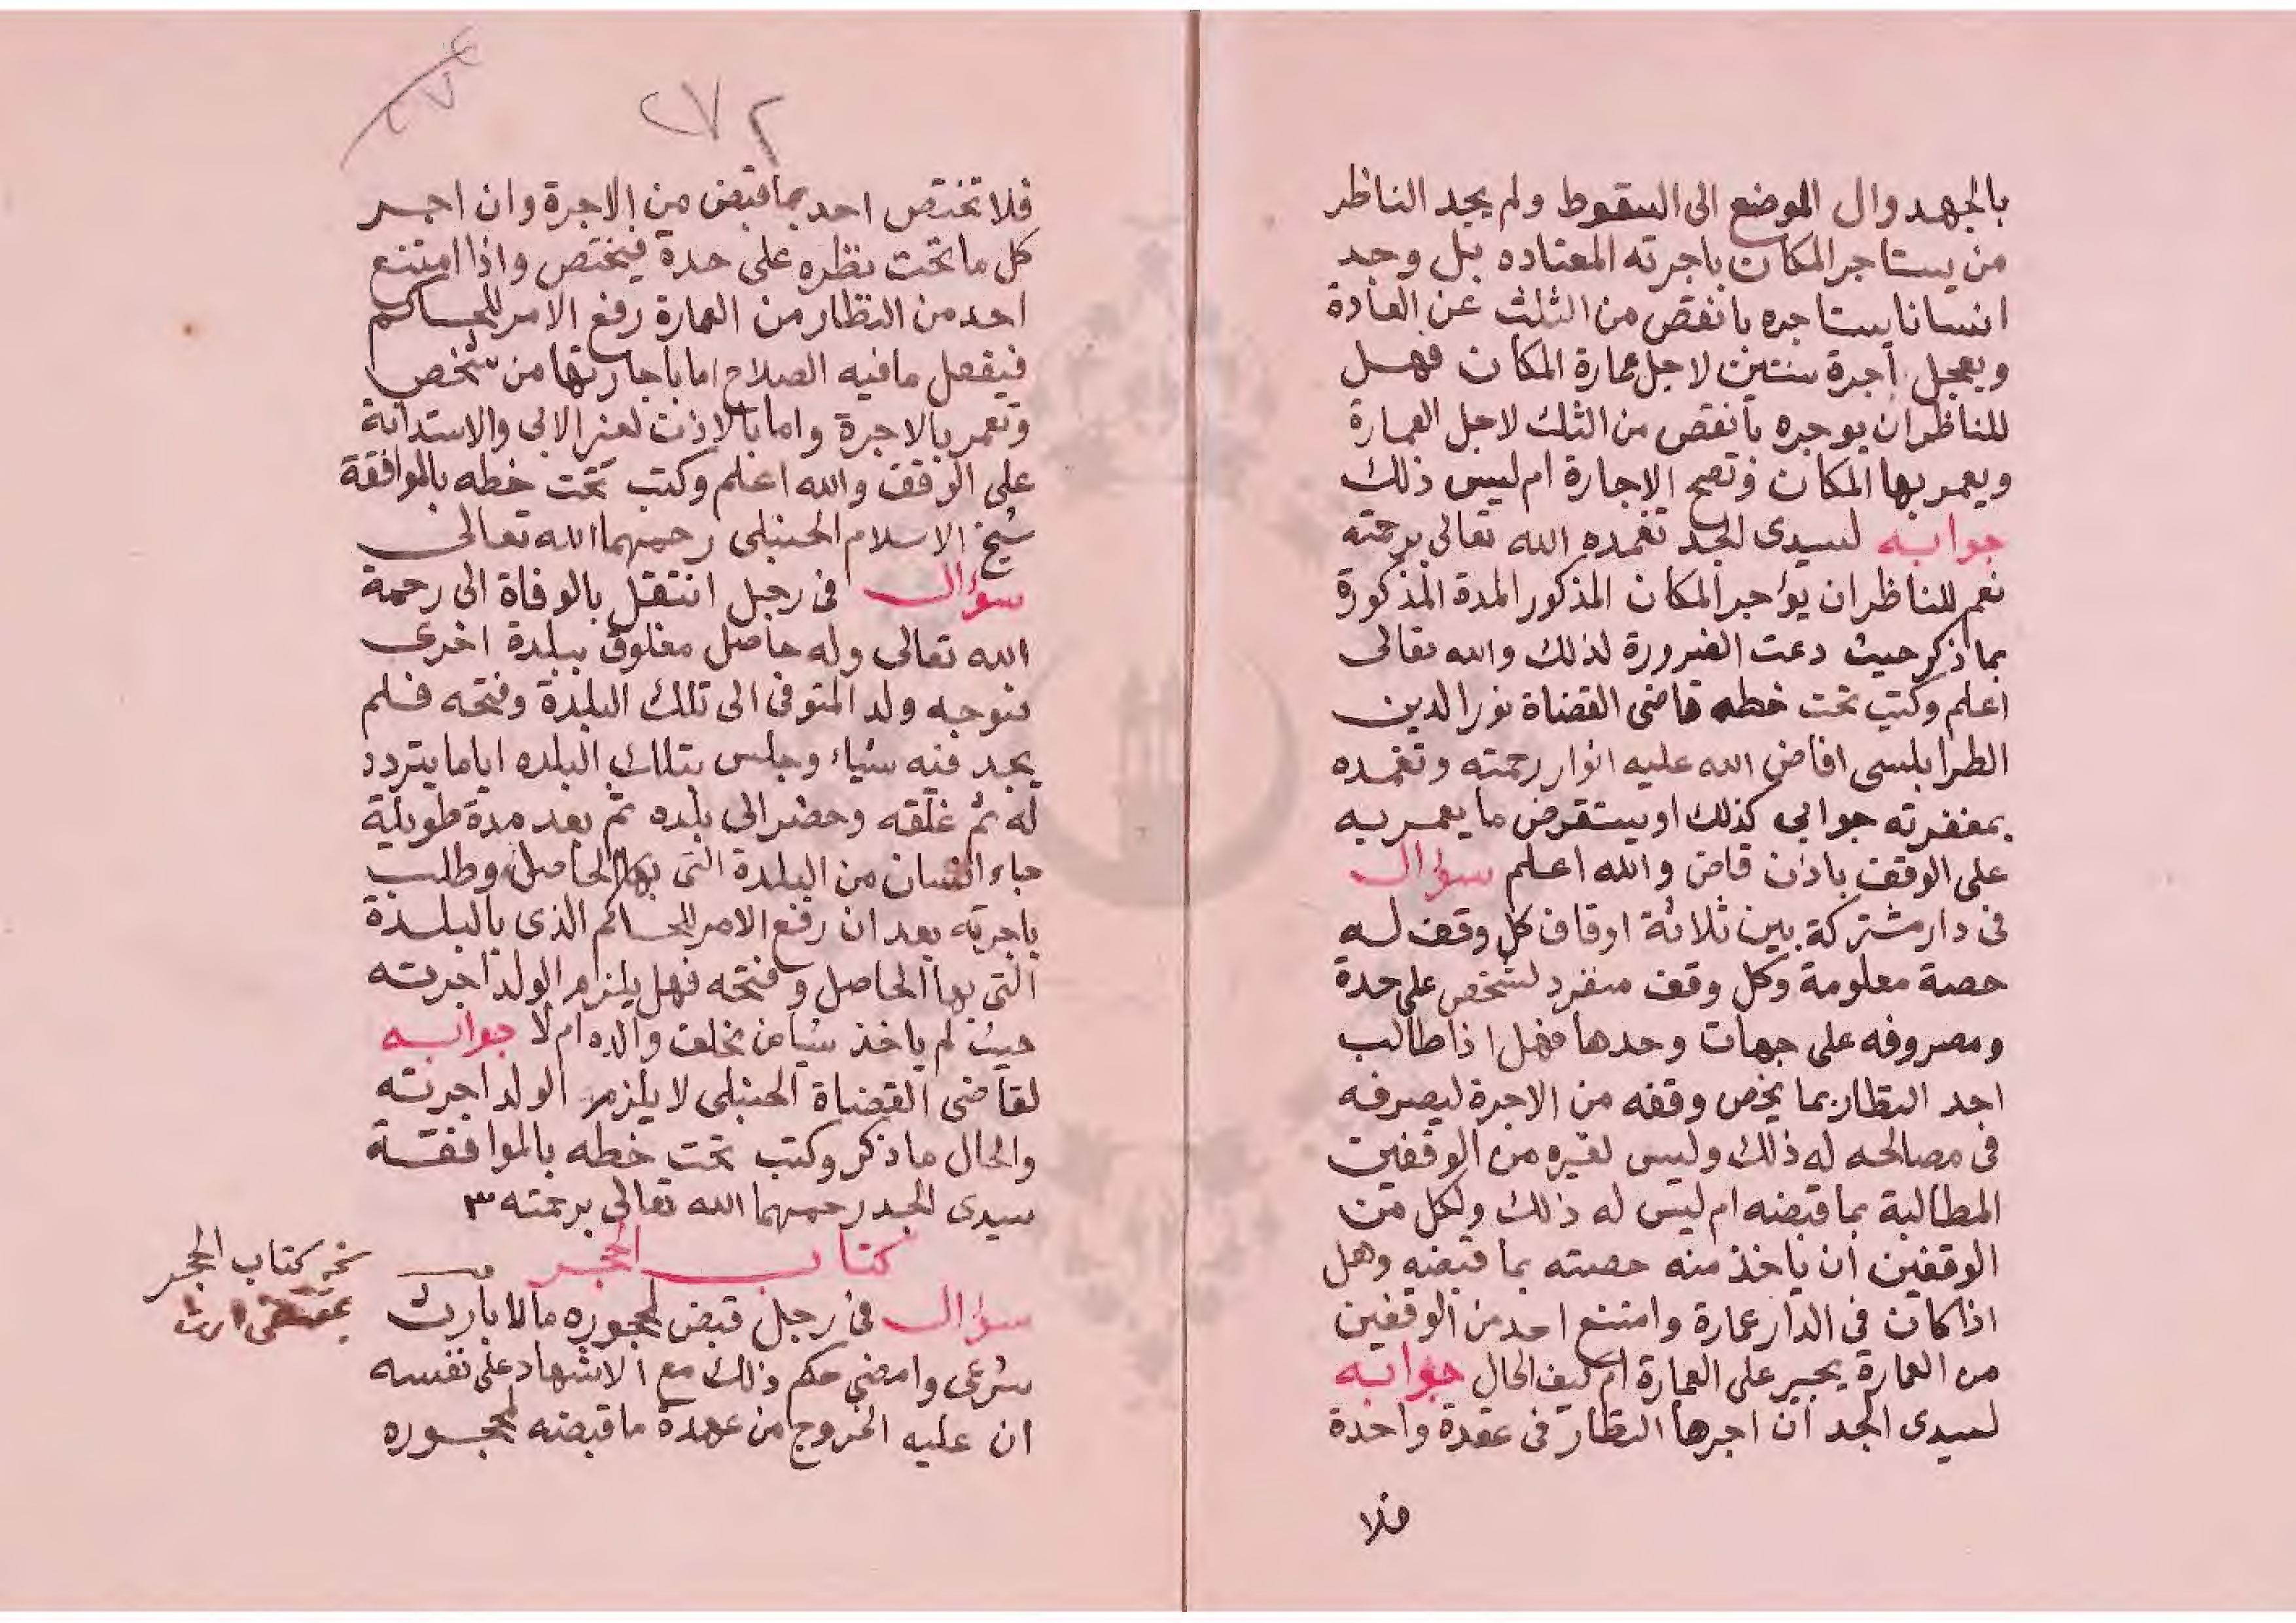 بالجهد وال الموضع الى السقوط ولم يجد الناظر
من يستاجر المكان باجرته المعتاده بل وجد
انسانا يستاجره بانقص من الثلث عن العادة
ويعجل اجرة سنتين لاجل عمارة المكان فهل
للناظر ان يوجره بانقص من الثلث لاجل العمارة
ويعمر بها المكان وتصح الاجارة ام ليس ذلك
جوابه لسيدى الجد تغمده الله تعالى برحمته
نعم للناظر ان يؤاجر المكان المذكور المدة المذكورة
بما ذكر حيث دعت الضرورة لذلك والله تعالى
اعلم وكتب تحت خطه قاضى القضاة نور الدين
الطرابلسى افاض الله عليه انوار رحمته وتغمده
بمغفرته جوابى كذلك او يستقرض ما يعمر به
على الوقف باذن قاض والله اعلم سؤال
فى دار مشتركة بين ثلاثة اوقاف كل وقف له
حصة معلومة وكل وقف منفرد لشخص على حدة
ومصروفه على جهات وحدها فهل اذا طالب
احد النظار بما يخص وقفه من الاجرة ليصرفه
فى مصالحه له ذلك وليس لغيره من الوقفين
المطالبة بما قبضه ام ليس له ذلك ولكل من
الوقفين ان ياخذ منه حصته بما قبضه وهل
اذا كان في الدار عمارة وامتنع احد من الوقفين
من العمارة يجبر على العمارة ام كيف الحال جوابه
لسيدى الجد ان اجرها النظار فى عقدة واحدة
فلا
٢٧٢
فلا تختص احد بما قبض من الاجرة وان اجر
كل ما تحت نظره على حدة فيختص واذا امتنع
احد من النظار من العمارة رفع الامر للحاكم
فيفعل ما فيه الصلاح اما باجارتها من شخص
وتعمر بالاجرة واما بالاذن لغير الابى والاستدانة
على الوقف والله اعلم وكتب تحت خطه بالموافقة
شيخ الاسلام الحنبلى رحمهما الله تعالى
سؤال فى رجل انتقل بالوفاة الى رحمة
الله تعالى وله حاصل مغلوق ببلدة اخرى
فتوجه ولد المتوفى الى تلك البلدة وفتحه فلم
يجد فيه شياء وجلس بتلك البلده اياما يتردد
له ثم غلقه وحضر الى بلده ثم بعد مدة طويلة
جاء انسان من البلدة التى بها الحاصل وطلب
باجرته بعد ان رفع الامر للحاكم الذى بالبلدة
التى بها الحاصل وفتحه فهل يلزم الولد اجرته
حيث لم ياخذ شيا من مخلف والده ام لا جوابه
لقاضى القضاة الحنبلى لا يلزم الولد اجرته
والحال ما ذكر وكتب تحت خطه بالموافقة
سيدى الجد رحمهما الله تعالى برحمته
كتاب الحجر
سؤال فى رجل قبض لمحجوره مالا بارث
شرعى وامضى حكم ذلك مع الاشهاد على نفسه
ان عليه الخروج من عهدة ما قبضه لمحجوره
كتاب الحجر